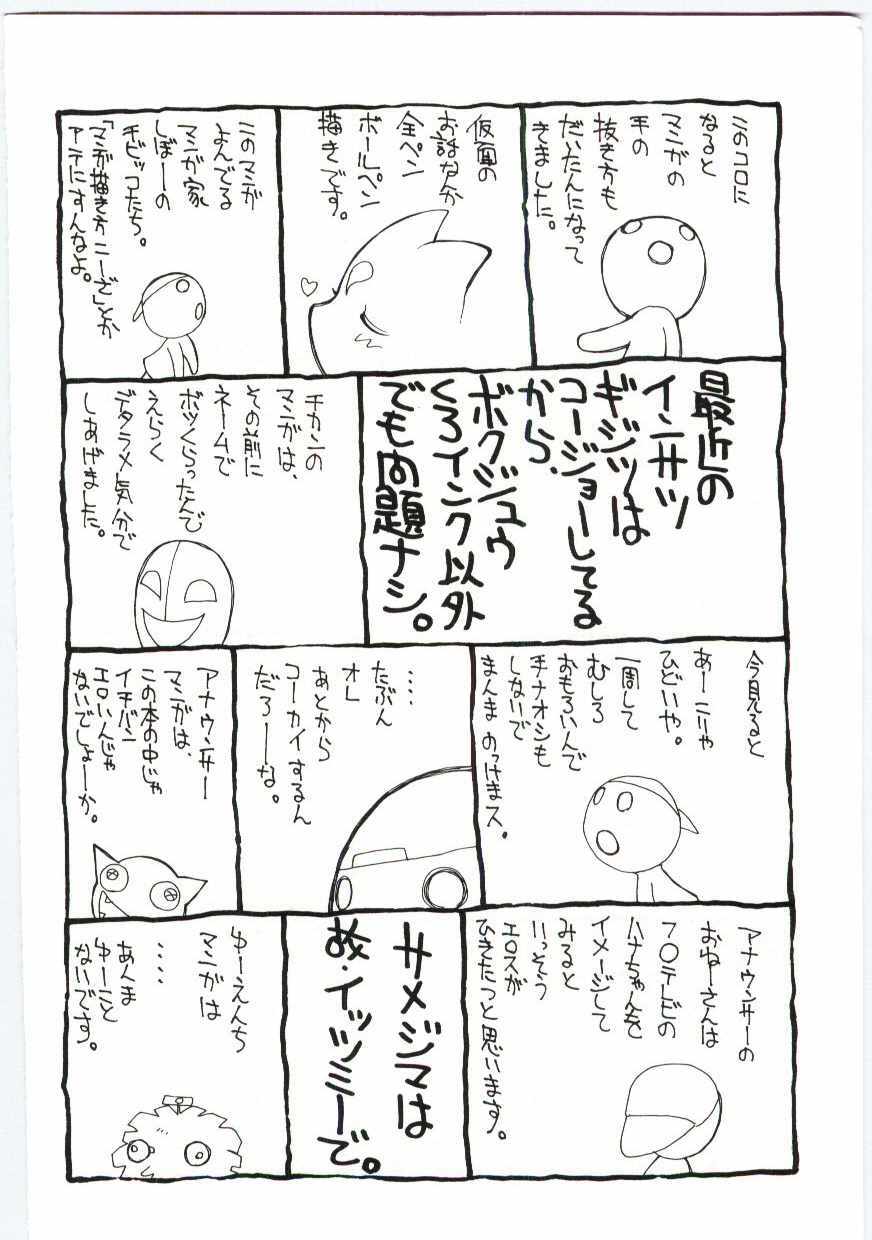 このコロに
なると
マンガの
手の
抜き方も
だいたんになって
きました。
仮面の
お話なんか
全ペン
ボールペン
描きです。
このマンガ
よんでる
マンガ家
しぼーの
チビッコたち。
「マンガ描き方こーざ」とか
アテにすんなよ。
最近の
インサツ
ギジツは
コージョーしてる
から、
ボクジュウ
くろインク以外
でも問題ナシ。
チカンの
マンガは、
その前に
ネームで
ボツくらったんで
えらく
デタラメ気分で
しあげました。
今見ると
あーこりゃ
ひどいや。
一周して
むしろ
おもろいんで
手ナオシも
しないで
まんま のっけまス。
‥‥
たぶん
オレ
あとから
コーカイするん
だろーな。
アナウンサー
マンガは、
この本の中じゃ
イチバン
エロいんじゃ
ないでしょーか。
アナウンサーの
おねーさんは
フ○テレビの
ハナちゃんを
イメージして
みると
いっそう
エロスが
ひきたつと思います。
サメジマは
故・イッツミーで。
ゆーえんち
マンガは
‥‥
あんま
ゆーこと
ないです。